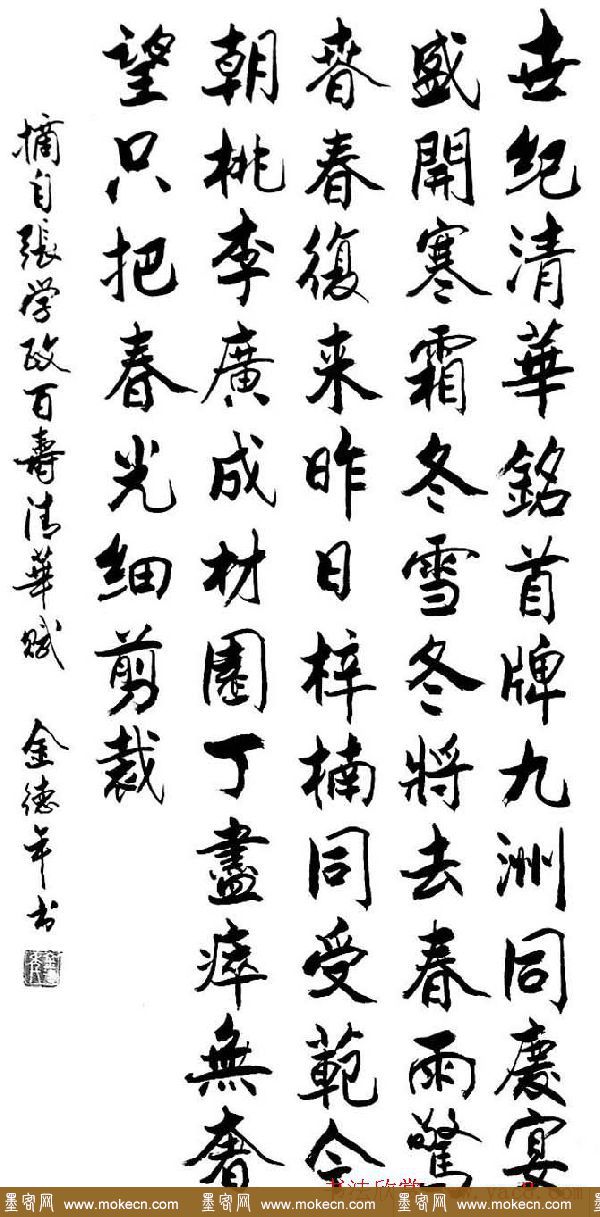 世紀清華銘首牌九洲同慶宴
盛開寒霜冬雪冬將去春雨驚
春春復来昨日梓楠同受範今
朝桃李廣成材園丁盡瘁無奢
望只把春光細剪裁
摘自張学政百壽清華賦 金德年书
书法欣赏
墨客网 www.mokecn.com 墨客网 www.mokecn.com 墨客网 www.mokecn.com 墨客网